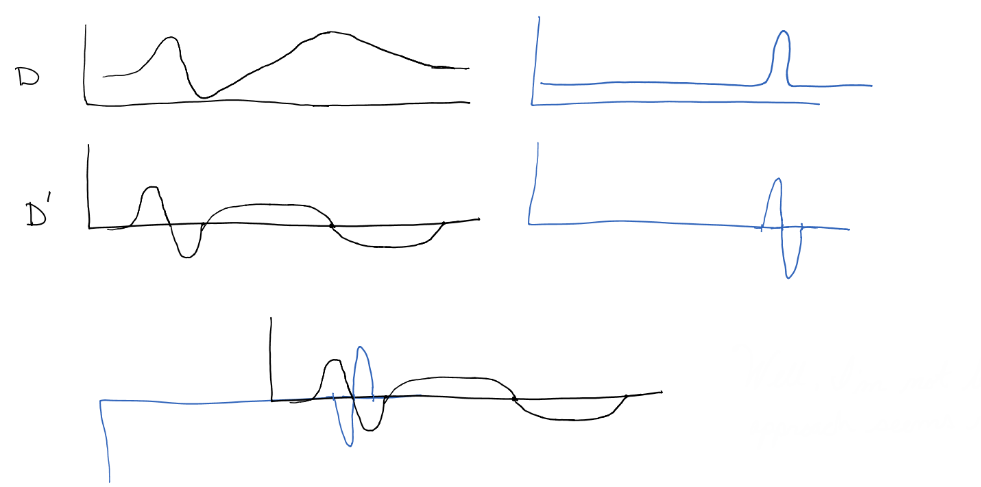 D
D'